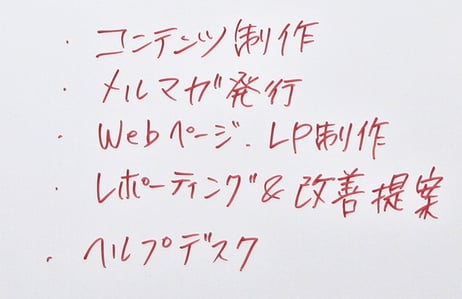 ・コンテンツ制作
・メルマガ発行
・Webページ、LP制作
・レポーティング&改善提案
・ヘルプデスク